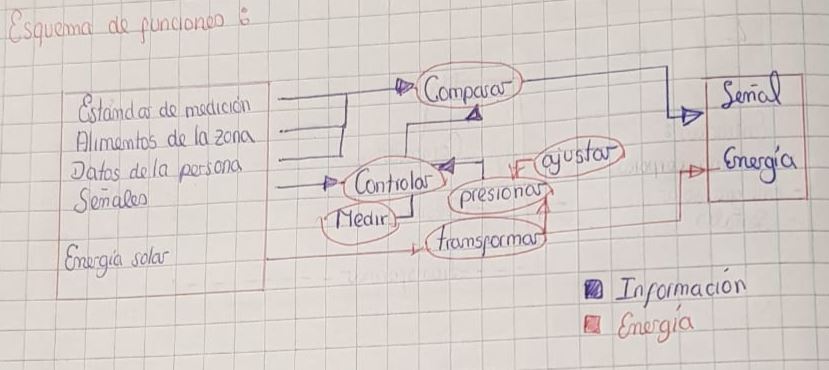 Esquema de funciones :
Estándar de medición
Alimentos de la zona
Datos de la persona
Señales
Energía solar
Comparar
Controlar
Medir
presionar
ajustar
transformar
Señal
Energía
Información
Energía